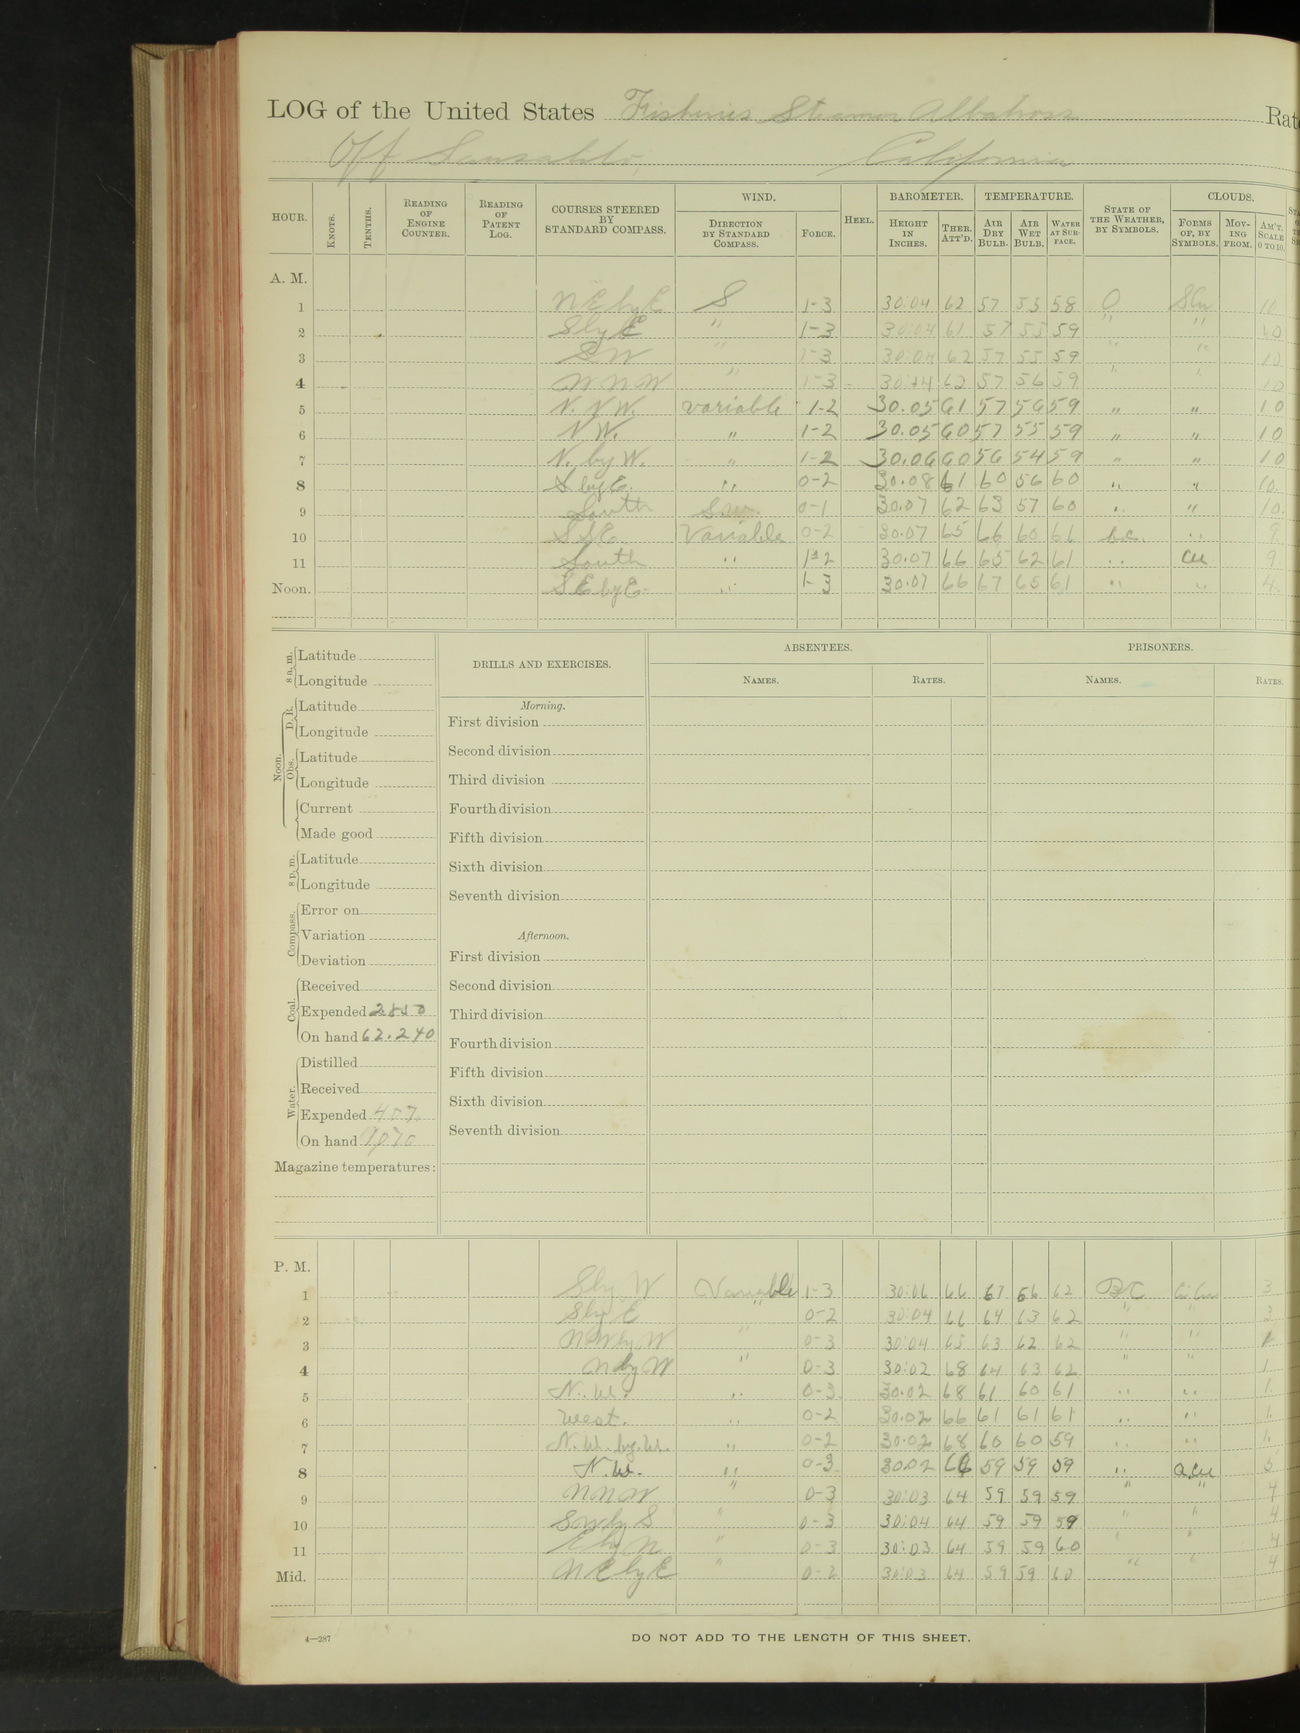 LOG of the United States Fisheries Steamer Albatross Rat
Off Sausalito, California
HOUR. KNOTS. TENTHS. READING OF ENGINE COUNTER. READING OF PATENT LOG. COURSES STEERED BY STANDARD COMPASS. WIND. DIRECTION BY STANDARD COMPASS. FORCE. HEEL. BAROMETER. HEIGHT IN INCHES. THER. ATT'D. TEMPERATURE. AIR DRY BULB. AIR WET BULB. WATER AT SURFACE. STATE OF THE WEATHER, BY SYMBOLS. CLOUDS. FORMS OF, BY SYMBOLS. MOVING FROM. AM'T. SCALE 0 TO 10.
A. M.
1 NE by E S 1-3 30.04 62 57 55 58 O SCu 10
2 S by E " 1-3 30.04 61 57 55 59 " " 10
3 SW " 1-3 30.04 62 57 55 59 " " 10
4 WNW " 1-3 30.04 62 57 56 59 " " 10
5 N. NW. variable 1-2 30.05 61 57 56 59 " " 10
6 NW. " 1-2 30.05 60 57 55 59 " " 10
7 N. by W. " 1-2 30.06 60 56 54 59 " " 10
8 S by E. " 0-2 30.08 61 60 56 60 " " 10.
9 South 0-1 30.07 62 63 57 60 " " 10.
10 SSE Variable 0-2 30.07 65 66 60 61 b.c. " 9.
11 South " 1-2 30.07 66 65 62 61 " Cu 9
Noon. SE by E. " 1-3 30.07 66 67 65 61 " " 4.
8 a. m. Latitude
Longitude
Noon. D. R. Latitude
Longitude
Obs. Latitude
Longitude
Current
Made good
8 p. m. Latitude
Longitude
Compass. Error on
Variation
Deviation
Coal. Received
Expended
On hand 62.240
Water. Distilled
Received
Expended 407.
On hand
Magazine temperatures:
DRILLS AND EXERCISES.
Morning.
First division
Second division
Third division
Fourth division
Fifth division
Sixth division
Seventh division
Afternoon.
First division
Second division
Third division
Fourth division
Fifth division
Sixth division
Seventh division
ABSENTEES. PRISONERS.
NAMES. RATES. NAMES. RATES.
P. M.
1 S by W Variable 1-3 30.06 66 67 66 62 BC Ci Cu 3
2 S by E " 0-2 30.04 66 64 63 62 " " 3
3 NW by W " 0-3 30.04 65 63 62 62 " "
4 N by W " 0-3 30.02 68 64 63 62 " " 1
5 N. W. " 0-3 30.02 68 61 60 61 " " 1.
6 West. " 0-2 30.02 66 61 61 61 " " 1.
7 N. W. by. W. " 0-2 30.02 68 60 60 59 " " 1.
8 N. W. " 0-3 30.02 66 59 59 59 " a.cu 5
9 NNW " 0-3 30.03 64 59 59 59 " " 4
10 SW by S " 0-3 30.04 64 59 59 59 " " 4
11 E by N " 0-3 30.03 64 59 59 60 " " 4
Mid. NE by E " 0-2 30.03 64 59 59 60 " " 4
4—287
DO NOT ADD TO THE LENGTH OF THIS SHEET.